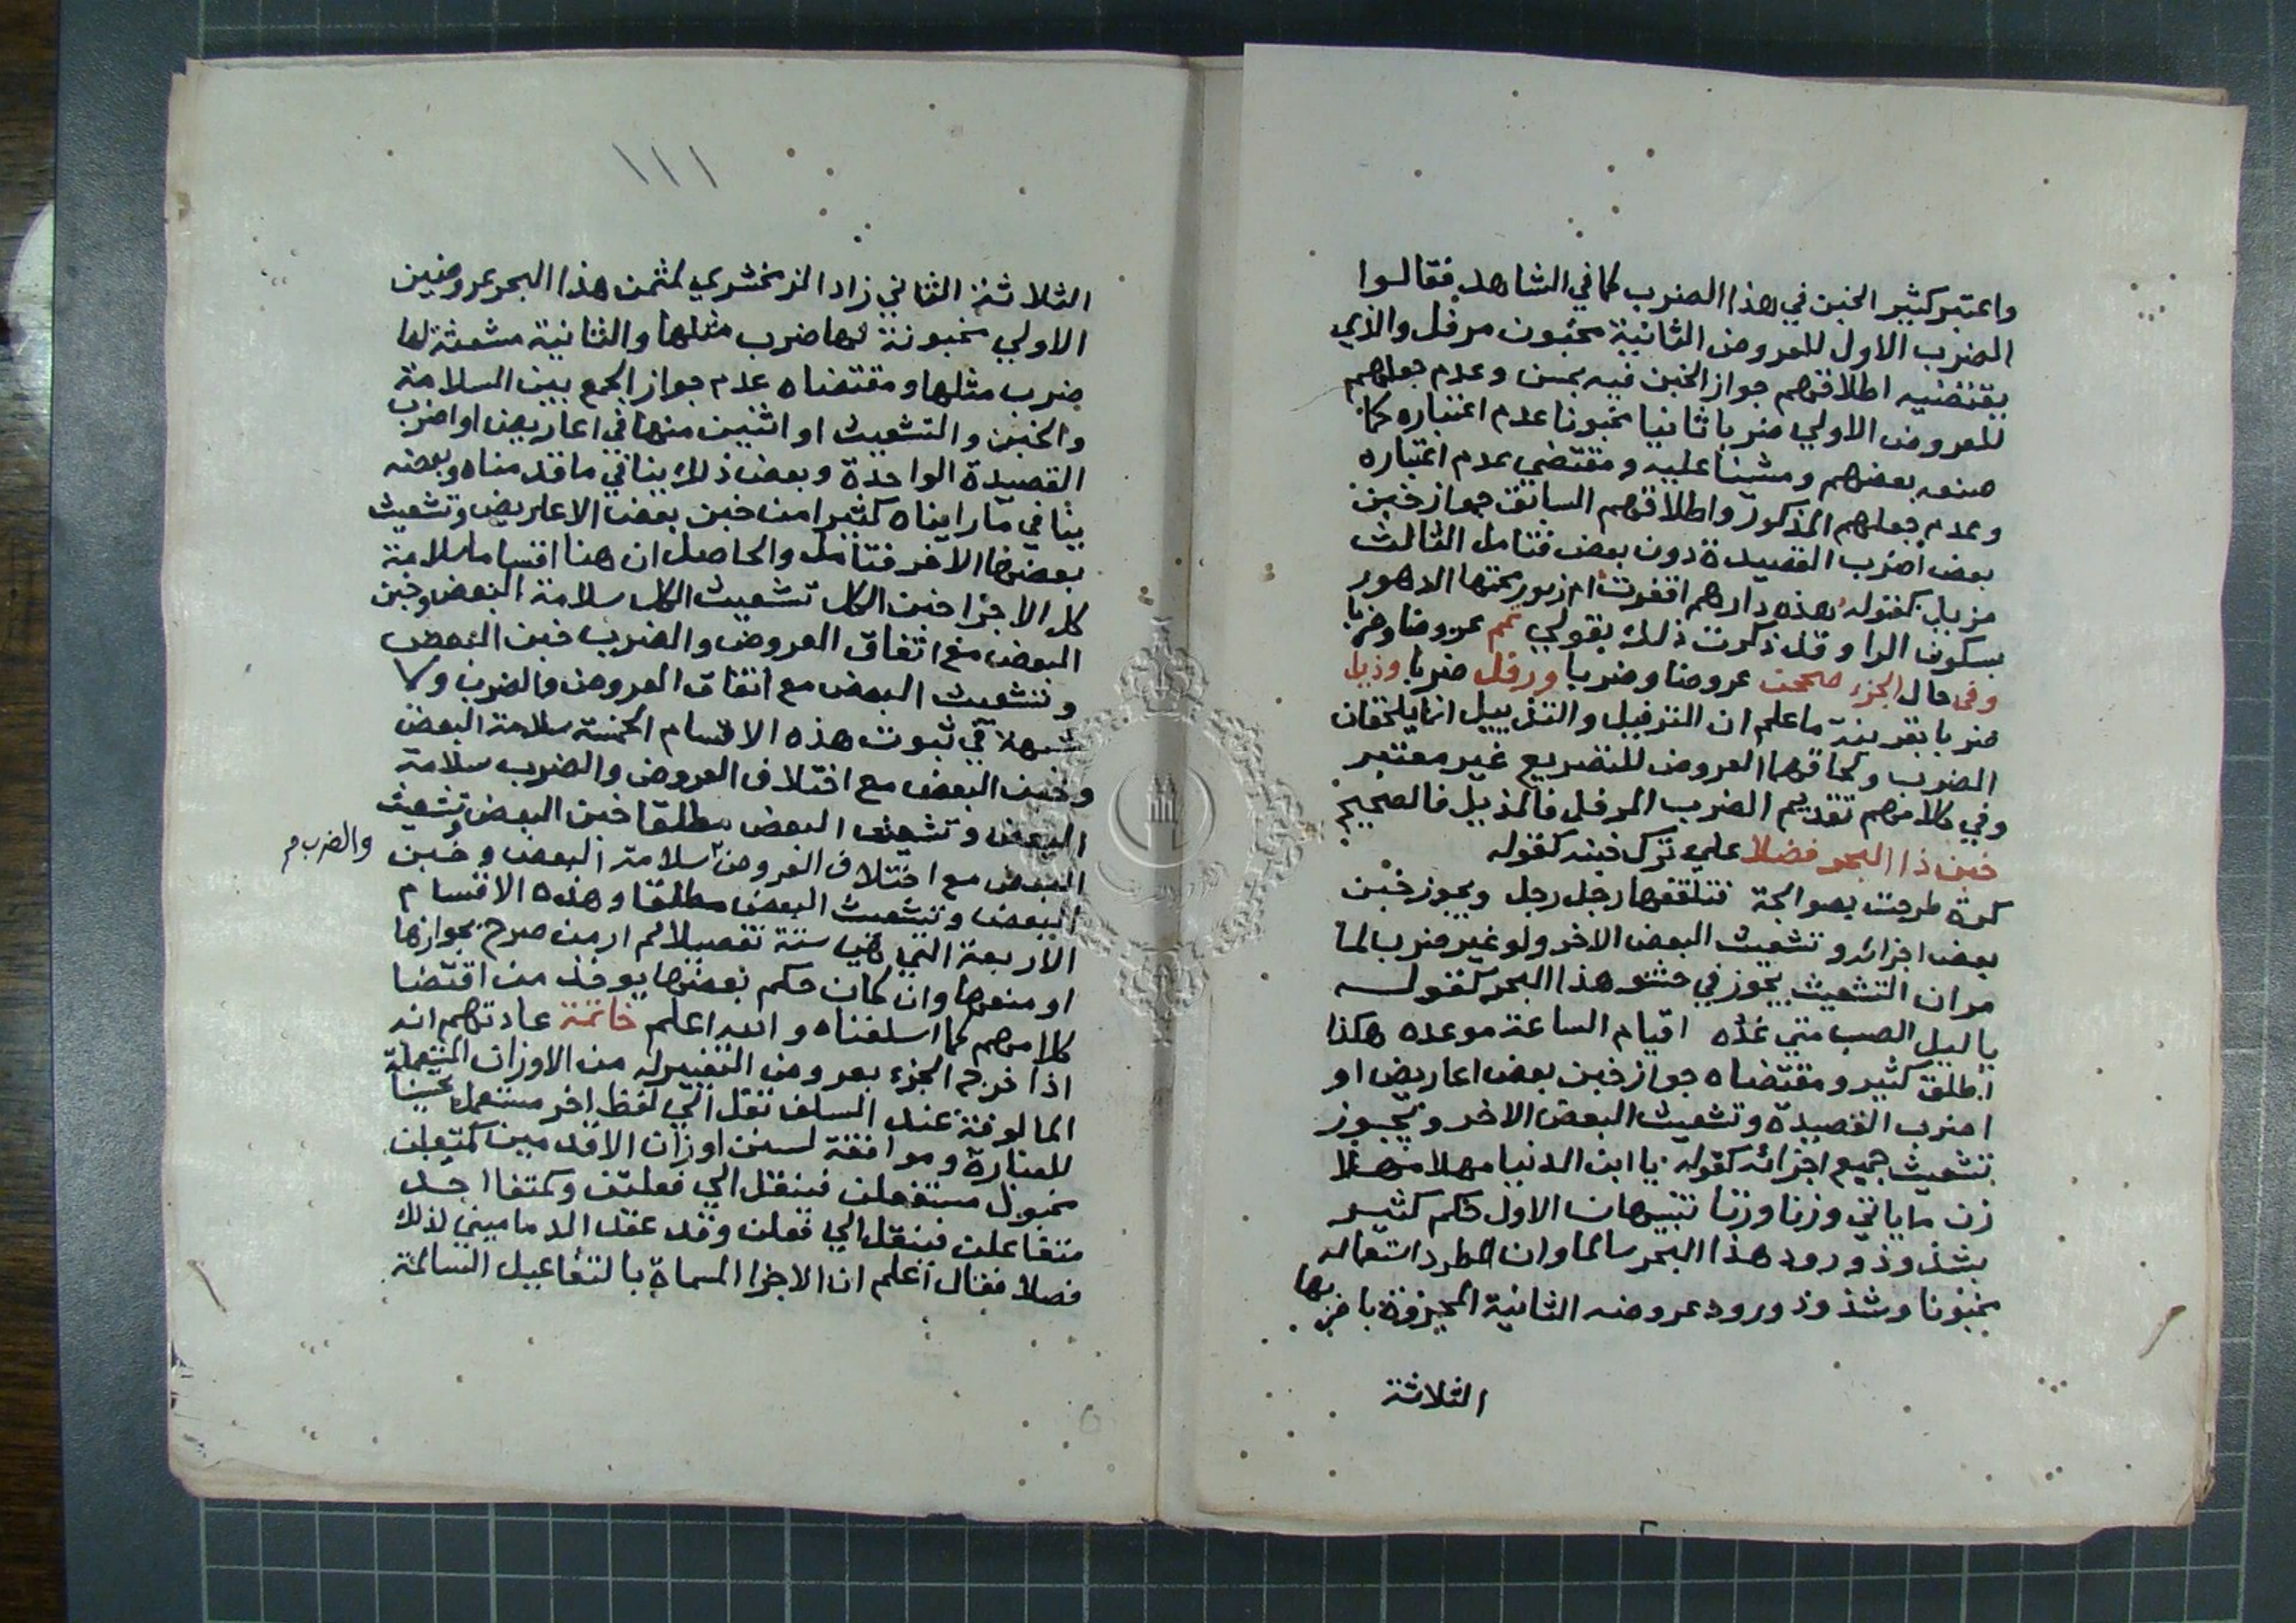 واعتبر كثير الخبن في هذا الضرب كما في الشاهد فقالوا
الضرب الاول للعروض الثانية مخبون مرفل والذي
يقتضيه اطلاقهم جواز الخبن فيه بحسن وعدم جعلهم
للعروض الاولي ضربا ثانيا مخبونا عدم اعتباره كما
صنعه بعضهم ومشينا عليه ومقتضي عدم اعتباره
وعدم جعلهم المذكور واطلاقهم السابق جواز خبن
بعض اضرب القصيدة دون بعض فتامل الثالث
مزيل كقوله هذه دارهم اقفرت ام زبور محتها الدهور
بسكون الرا وقد ذكرت ذلك بقولي تمم عروضا وضربا
وفي حال الجزء صححت عروضا وضربا ورفل ضربا وذيل
ضربا بقرينة ما علم ان الترفيل والتذييل انما يلحقان
الضرب ولحاقهما العروض للتصريع غير معتبر
وفي كلامهم تقديم الضرب المرفل فالمذيل فالصحيح
خبن ذا البحر فضلا علي ترك خبنه كقوله
كرة طرحت بصوالجة فتلقفها رجل رجل ويجوز خبن
بعض اجزائه وتشعيث البعض الاخر ولو غير ضرب لما
مر ان التشعيث يجوز في حشو هذا البحر كقوله
يا ليل الصب متي غده اقيام الساعة موعده هكذا
اطلق كثير ومقتضاه جواز خبن بعض اعاريض او
اضرب القصيدة وتشعيث البعض الاخر ويجوز
تشعيث جميع اجزائه كقوله يا ابن الدنيا مهلا مهلا
زن ما ياتي وزنا وزنا تنبيهان الاول حكم كثير
بشذوذ ورود هذا البحر سالما وان اطرد استعماله
مخبونا وشذوذ ورود عروضه الثانية المجزوة باضربها
الثلاثة
١١١
الثلاثة الثاني زاد الزمخشري لمثمن هذا البحر عروضين
الاولي مخبونة لها ضرب مثلها والثانية مشعثة لها
ضرب مثلها ومقتضاه عدم جواز الجمع بين السلامة
والخبن والتشعيث او اثنين منها في اعاريض او اضرب
القصيدة الواحدة وبعض ذلك ينافي ما قدمناه وبعضه
ينافي ما رايناه كثيرا من خبن بعض الاعاريض وتشعيث
بعضها الاخر فتامل والحاصل ان هنا اقساما سلامة
كل الاجزا خبن الكل تشعيث الكل سلامة البعض وخبن
البعض مع اتفاق العروض والضرب خبن البعض
وتشعيث البعض مع اتفاق العروض والضرب ولا
شبهة في ثبوت هذه الاقسام الخمسة سلامة البعض
وخبن البعض مع اختلاف العروض والضرب سلامة
البعض وتشعيث البعض مطلقا خبن البعض وتشعيث
البعض مع اختلاف العروض سلامة البعض وخبن
والضرب م
البعض وتشعيث البعض مطلقا وهذه الاقسام
الاربعة التي هي ستة تفصيلا لم ار من صرح بجوازها
او منعها وان كان حكم بعضها يوخذ من اقتضا
كلامهم كما اسلفناه والله اعلم خاتمة عادتهم انه
اذا خرج الجزء بعروض التغيير له من الاوزان المستعملة
المالوفة عند السلف نقل الي لفظ اخر مستعمل تحسينا
للعبارة وموافقة لسنن اوزان الاقدمين كمتعلن
مخبول مستفعلن فينقل الي فعلتن وكمتفا احذ
متفاعلن فينقل الي فعلن وقد عقد الدماميني لذلك
فصلا فقال اعلم ان الاجزا المسماة بالتفاعيل السالمة